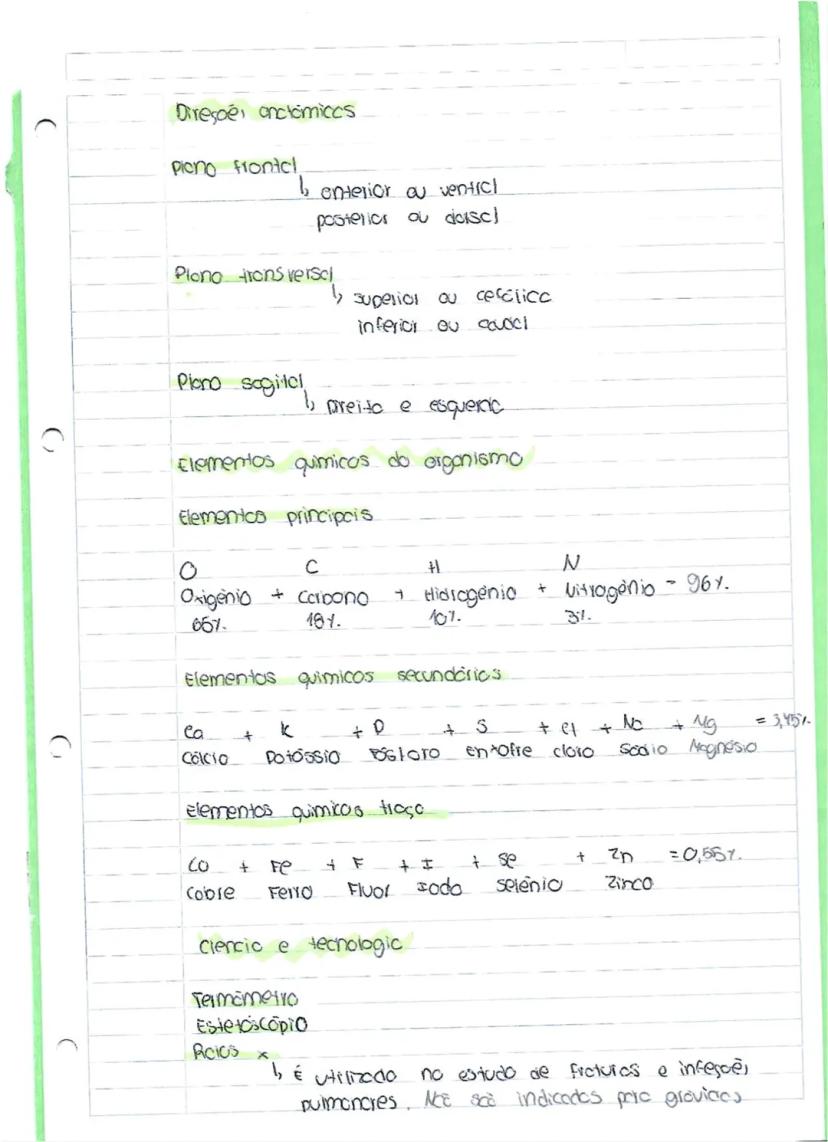 Direções anatómicas
Plano frontal
↳ anterior ou ventral
posterior ou dorsal
Plano transversal
↳ superior ou cefálica
inferior ou caudal
Plano sagital
↳ Direita e esquerda
Elementos químicos do organismo
Elementos principais
O C H N
Oxigénio + Carbono + Hidrogénio + Nitrogénio = 96%.
65%. 18%. 10%. 3%.
Elementos químicos secundários
Ca + K + P + S + Cl + Na + Mg = 3,45%
Cálcio Potássio Fósforo enxofre cloro Sódio Magnésio
Elementos químicos traço
Co + Fe + F + I + Se + Zn = 0,55%.
Cobre Ferro Fluor Iodo Selénio Zinco
Ciencia e tecnologia
Termómetro
Estetóscópio
Raios x
↳ É utilizado no estudo de fraturas e infeções
pulmonares. Não são indicados para grávidas